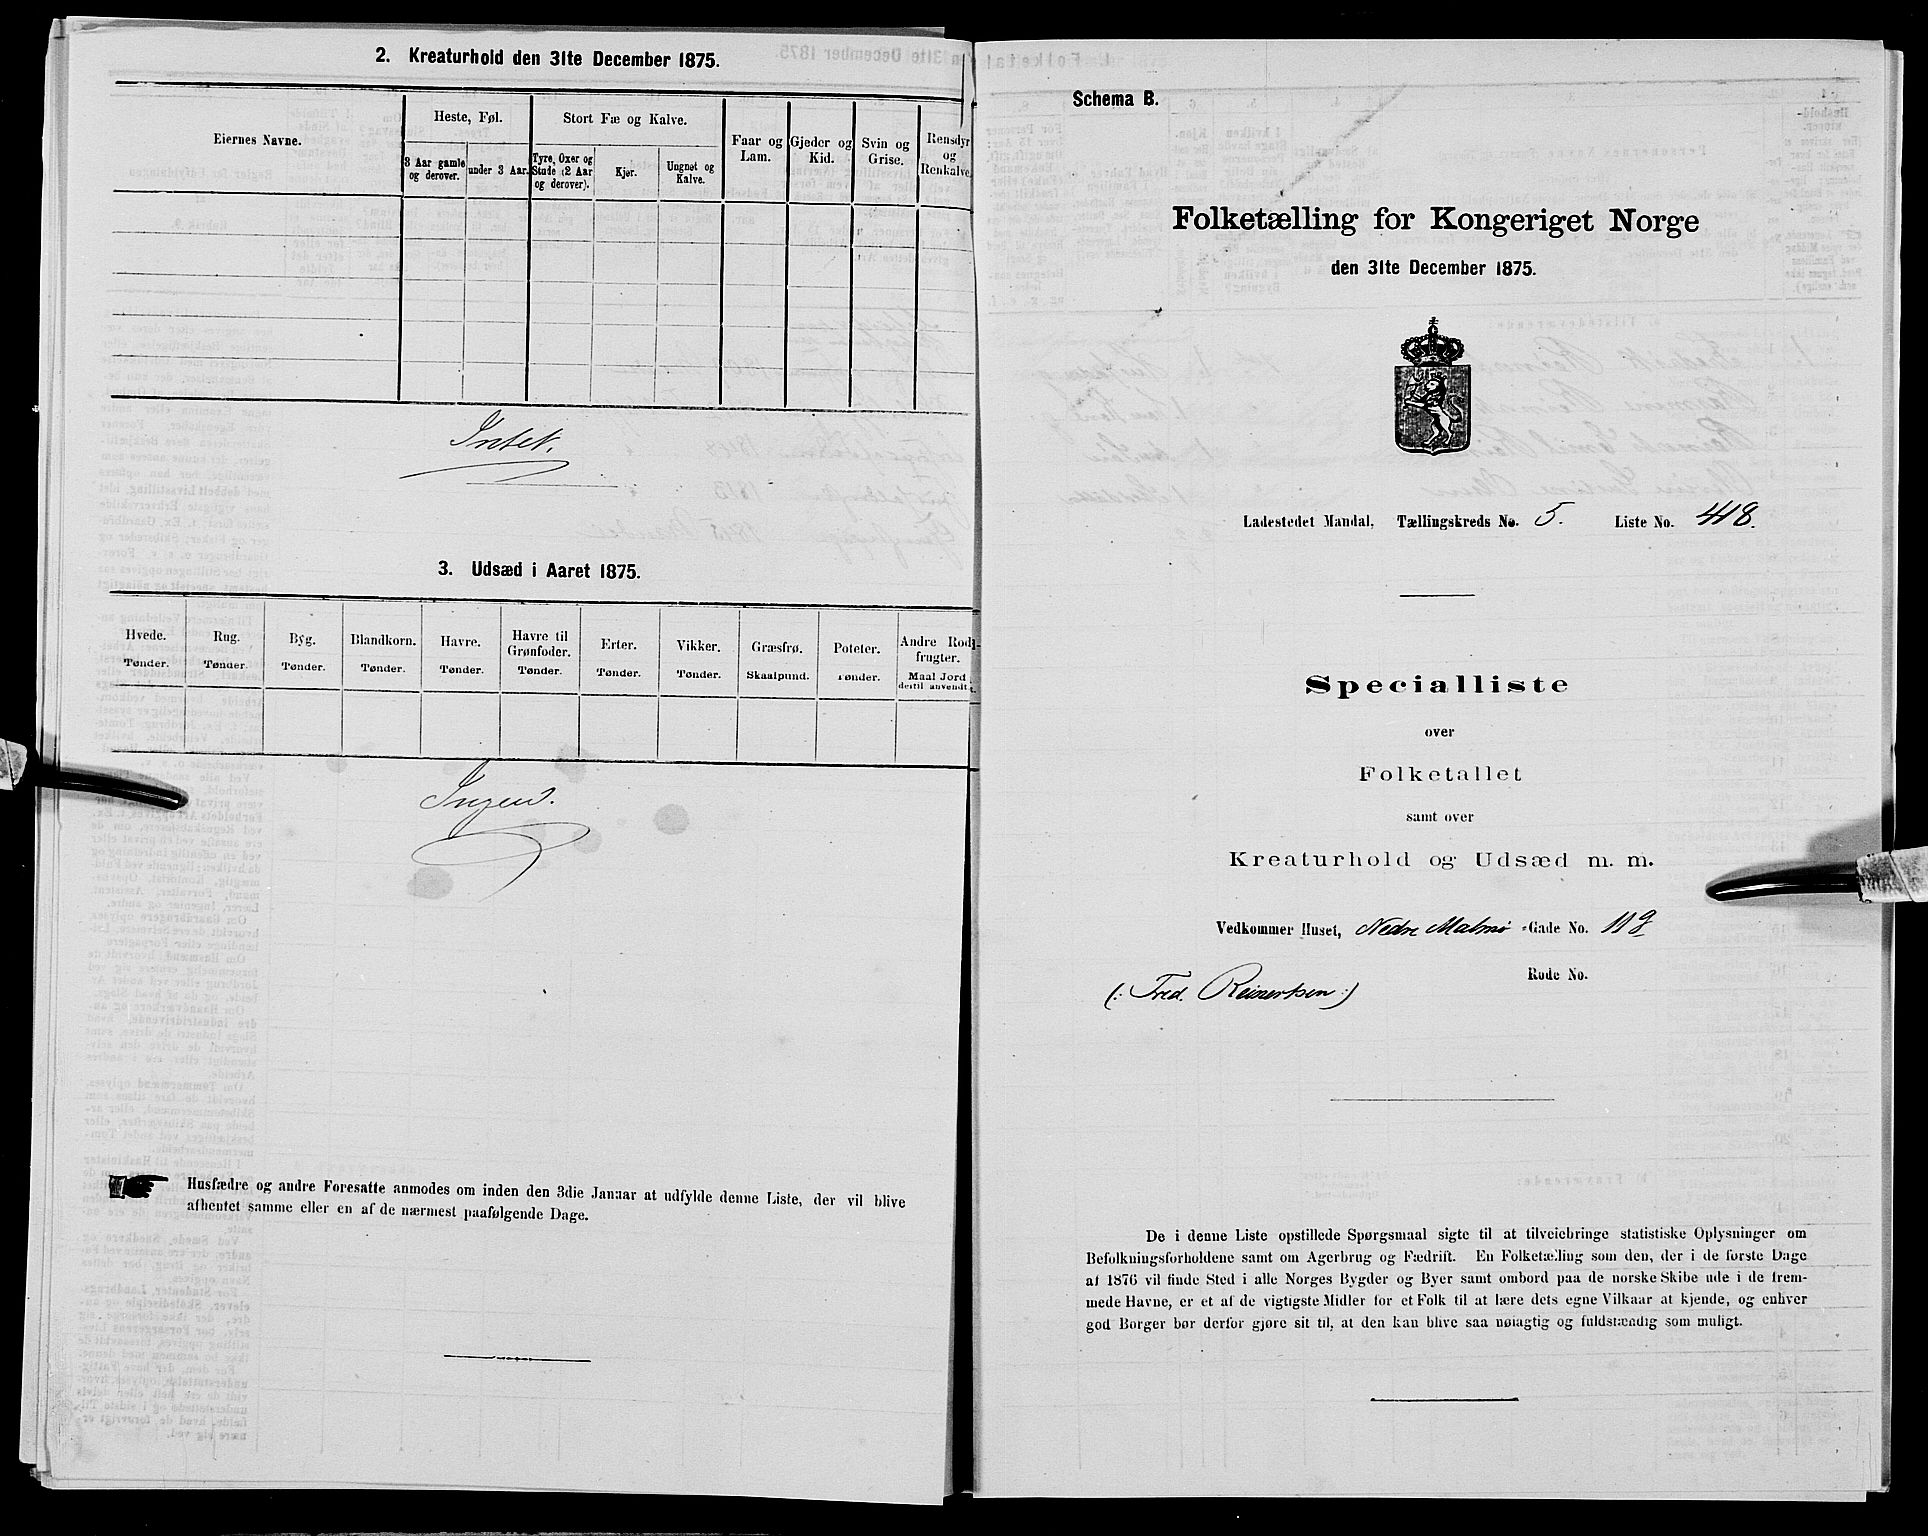 2. Kreaturhold den 31te December 1875.
Eiernes Navne.
Heste, Føl.
Stort Fæ og Kalve.
Faar og Lam.
Gjeder og Kid.
Svin og Grise.
Rensdyr og Renkalve.
3 Aar gamle og derover.
under 3 Aar.
Tyre, Oxer og Stude (2 Aar og derover).
Kjør.
Ungnøt og Kalve.
Intet.
3. Udsæd i Aaret 1875.
Hvede.
Rug.
Byg.
Blandkorn.
Havre.
Havre til Grønfoder.
Erter.
Vikker.
Græsfrø.
Poteter.
Andre Rodfrugter.
Tønder.
Tønder.
Tønder.
Tønder.
Tønder.
Tønder.
Tønder.
Tønder.
Skaalpund.
Tønder.
Maal Jord dertil anvendt.
Ingen.
Husfædre og andre Foresatte anmodes om inden den 3die Januar at udfylde denne Liste, der vil blive
afhentet samme eller en af de nærmest paafølgende Dage.
Schema B.
Folketælling for Kongeriget Norge
den 31te December 1875.
Ladestedet Mandal, Tællingskreds No. 5. Liste No. 418.
Specialliste
over
Folketallet
samt over
Kreaturhold og Udsæd m. m.
Vedkommer Huset, Nedre Malmø -Gade No. 119
Rode No.
(: Fred. Reinertsen :)
De i denne Liste opstillede Spørgsmaal sigte til at tilveiebringe statistiske Oplysninger om
Befolkningsforholdene samt om Agerbrug og Fædrift. En Folketælling som den, der i de første Dage
af 1876 vil finde Sted i alle Norges Bygder og Byer samt ombord paa de norske Skibe ude i de frem-
mede Havne, er et af de vigtigste Midler for et Folk til at lære dets egne Vilkaar at kjende, og enhver
god Borger bør derfor gjøre sit til, at den kan blive saa nøiagtig og fuldstændig som muligt.